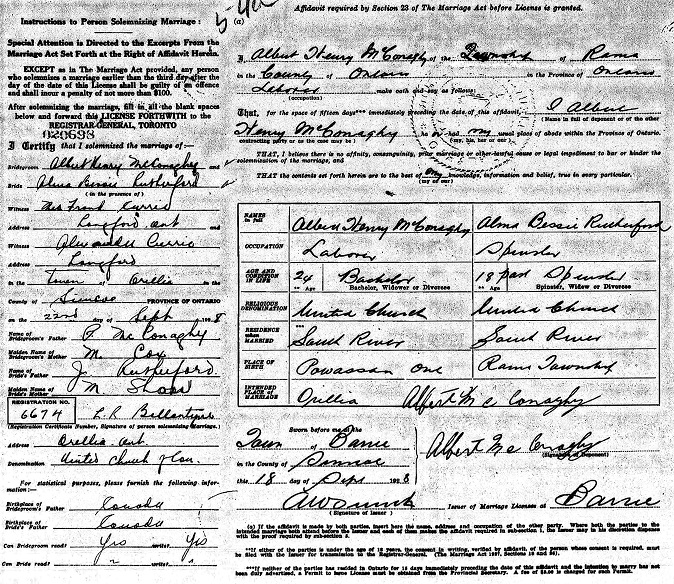 Instructions to Person Solemnizing Marriage:
Special Attention is Directed to the Excerpts From the
Marriage Act Set Forth at the Right of Affidavit Herein.
EXCEPT as in The Marriage Act provided, any person
who solemnizes a marriage earlier than the third day after the
day of the date of this License shall be guilty of an offence
and shall incur a penalty of not more than $100.
After solemnizing the marriage, fill in all the blank spaces
below and forward this LICENSE FORTHWITH to the
REGISTRAR-GENERAL, TORONTO
I Certify that I solemnized the marriage of—
Bridegroom Albert Henry McConaghy and
Bride Alma Bessie Rutherford
(in the presence of)
Witness Mrs Frank Currie
Address Longford Ont and
Witness Alexander Currie
Address Longford
in the Town of Orillia in the
County of Simcoe PROVINCE OF ONTARIO
on the 22nd day of Sept 1938
Name of Bridegroom's Father P. McConaghy
Maiden Name of Bridegroom's Mother M. Cox
Name of Bride's Father J. Rutherford
Maiden Name of Bride's Mother M.
REGISTRATION NO.
6674 Ballantyne
(Registration Certificate Number, Signature of person solemnizing marriage.)
Address Orillia Ont.
Denomination United Church of Can.
For statistical purposes, please furnish the following information:—
Birthplace of Bridegroom's Father Canada
Birthplace of Bride's Father Canada
Can Bridegroom read? Yes write? Yes
Can Bride read? " write? "
Affidavit required by Section 23 of The Marriage Act before License is granted.
(a)
I Albert Henry McConaghy of the Township of Rama
in the County of Ontario in the Province of Ontario
Laborer make oath and say as follows:
(occupation)
That, for the space of fifteen days*** immediately preceding the date of this affidavit, I Albert
(Name in full of deponent or of the other
Henry McConaghy he or had my usual place of abode within the Province of Ontario.
contracting party as the case may be) (my, his, her or our)
THAT, I believe there is no affinity, consanguinity, prior marriage or other lawful cause or legal impediment to bar or hinder the
solemnization of the marriage, and
THAT the contents set forth herein are to the best of my knowledge, information and belief, true in every particular.
(my or our)
NAMES in full Albert Henry McConaghy Alma Bessie Rutherford
OCCUPATION Laborer Spinster
AGE AND CONDITION IN LIFE 24 Bachelor 18 past Spinster
** Age Bachelor, Widower or Divorcee ** Age Spinster, Widow or Divorcee
RELIGIOUS DENOMINATION United Church United Church
RESIDENCE when MARRIED *** South River South River
PLACE OF BIRTH Powassan Ont Rama Township
INTENDED PLACE OF MARRIAGE Orillia Albert McConaghy
Sworn before me at the
Town of Barrie
in the County of Simcoe
this 18 day of Sept 1938
Albert McConaghy
(Signature of Deponent)
(Signature of Issuer) Issuer of Marriage Licenses at Barrie
(a) If the affidavit is made by both parties, insert here the name, address and occupation of the other party. Where both the parties to the
intended marriage both attend before the issuer and each of them makes the affidavit required in subsection 1, the issuer may in his discretion dispense
with the proof required by subsection 5.
**If either of the parties is under the age of 18 years, the consent in writing, verified by affidavit, of the person whose consent is required, must
be filed with the issuer for transmission to the Registrar-General.
***If neither of the parties has resided in Ontario for 15 days immediately preceding the date of this affidavit and the intention to marry has not
been duly advertised, a Permit to Issue Licenses must be obtained from the Provincial Secretary. A fee of $5.00 is charged for such Permit.